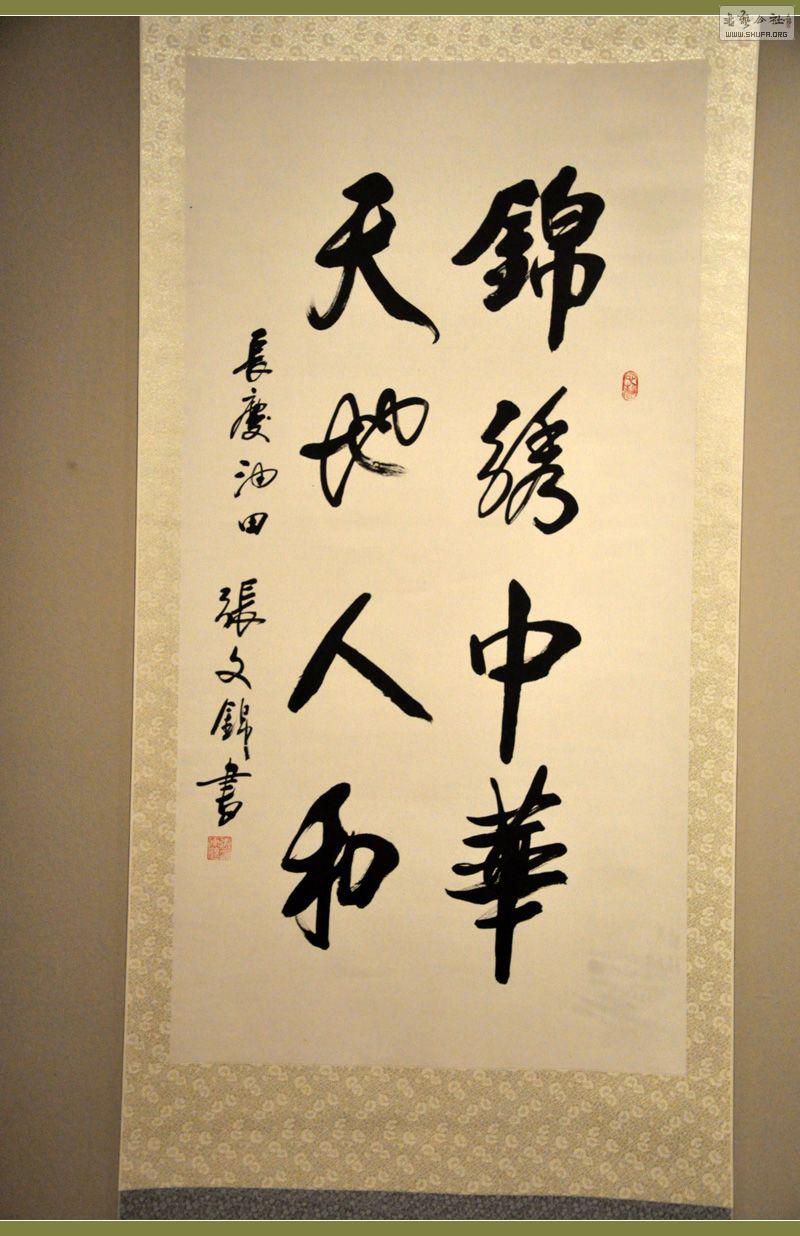 錦綉中華
天地人和
長慶油田 張文錦書
書藝公社
WWW.SHUFA.ORG